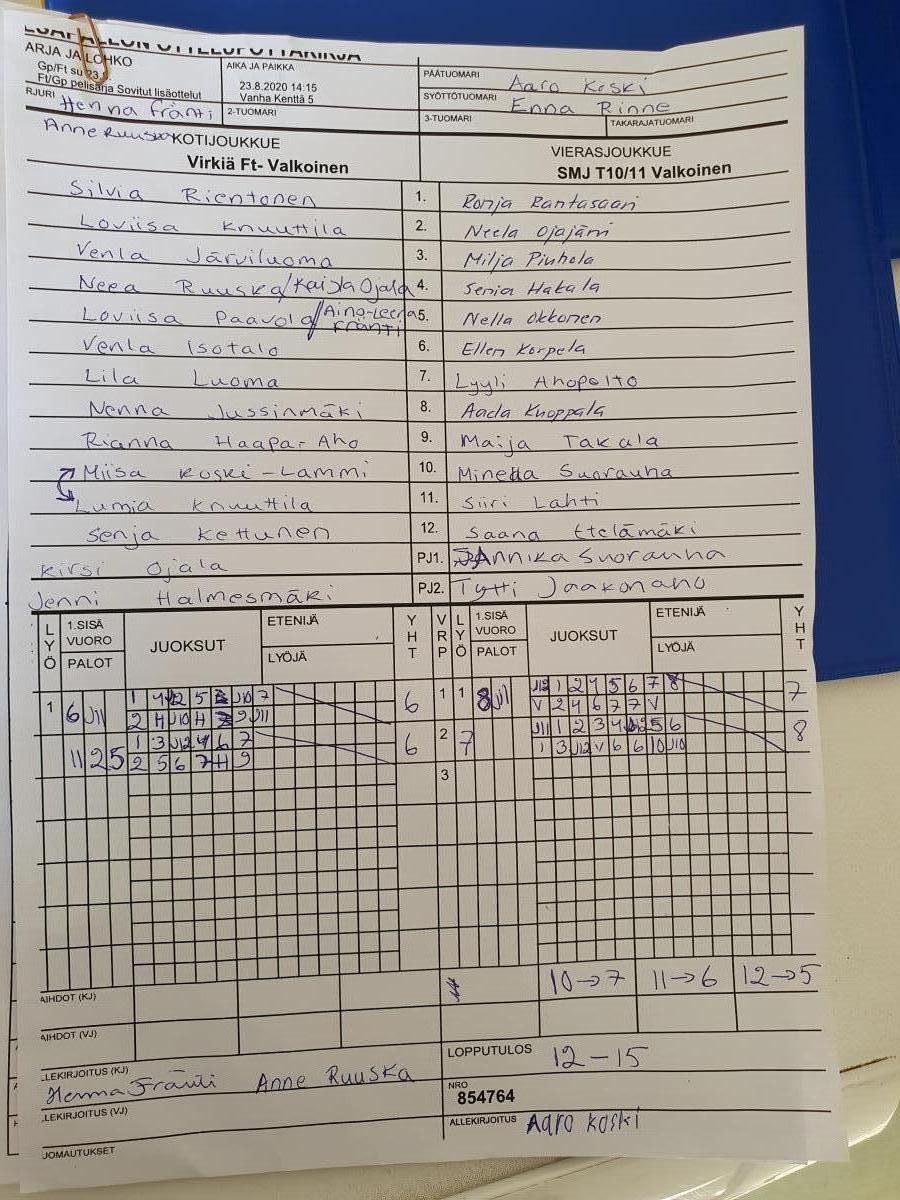 ARJA JA LOHKO
Gp/Ft su 23.
Ft/Gp pelisarja Sovitut lisäottelut
AIKA JA PAIKKA
23.8.2020 14:15
Vanha Kenttä 5
PÄÄTUOMARI Aaro Koski
SYÖTTÖTUOMARI Enna Rinne
RJURI Henna Fränti
2-TUOMARI
3-TUOMARI
TAKARAJATUOMARI
Anne Ruuska
KOTIJOUKKUE
Virkiä Ft- Valkoinen
VIERASJOUKKUE
SMJ T10/11 Valkoinen
Silvia Rientonen 1. Ronja Rantasaari
Loviisa Knuuttila 2. Neela Ojajärvi
Venla Järviluoma 3. Milja Piuhola
Neea Ruuska/Kaisla Ojala 4. Senja Hakala
Loviisa Paavola/Aino-Leena Fränti 5. Nella Okkonen
Venla Isotalo 6. Ellen Korpela
Lila Luoma 7. Lyyli Ahopelto
Nenna Jussinmäki 8. Aada Knoppala
Rianna Haapa-Aho 9. Maija Takala
Miisa Koski-Lammi 10. Minella Suorauha
Lumia Knuuttila 11. Siiri Lahti
Senja Kettunen 12. Saana Etelämäki
Kirsi Ojala PJ1. Annika Suorauha
Jenni Halmesmäki PJ2. Tytti Jaakonaho
LYÖ
1.SISÄ VUORO
PALOT
JUOKSUT
ETENIJÄ
LYÖJÄ
YHT
VRP
LYÖ
1.SISÄ VUORO
PALOT
JUOKSUT
ETENIJÄ
LYÖJÄ
YHT
1 6 J11
6
1 1 8 J11
J12 1 2 4 5 6 7 8
V 2 4 6 7 7 V
7
11 2 5
1 3 J12 4 6 7
2 5 6 7 H 9
6
2 7
1 3 J12 V 6 6 10 J10
8
3
10→7 11→6 12→5
AIHDOT (KJ)
AIHDOT (VJ)
LEKIRJOITUS (KJ)
Henna Fränti Anne Ruuska
LEKIRJOITUS (VJ)
JOMAUTUKSET
LOPPUTULOS 12-15
NRO
854764
ALLEKIRJOITUS Aaro Koski